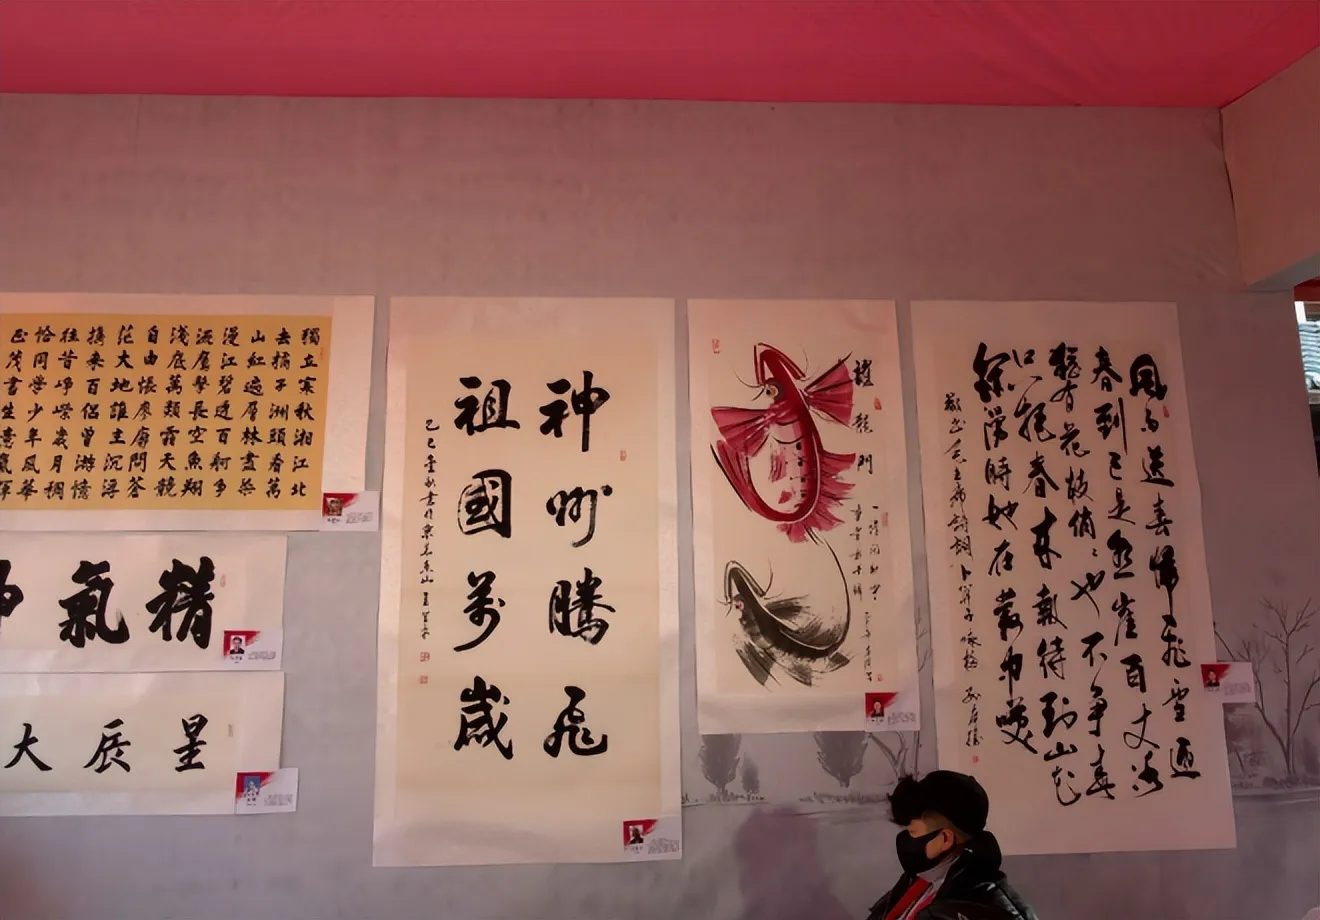 獨立寒秋湘江北
去橘子洲頭看萬
山紅遍層林盡染
漫江碧透百舸爭
流鷹擊長空魚翔
淺底萬類霜天競
自由悵廖廓問蒼
茫大地誰主沉浮
攜來百侶曾游憶
往昔崢嶸歲月稠
恰同學少年風華
正茂書生意氣揮
精氣神
星辰大
神州騰飛
祖國萬歲
躍龍門
風雨送春歸飛雪迎
春到已是懸崖百丈冰
猶有花枝俏〻也不爭春
只把春來報待到山花
爛漫時她在叢中笑
主席詩詞卜算子咏梅